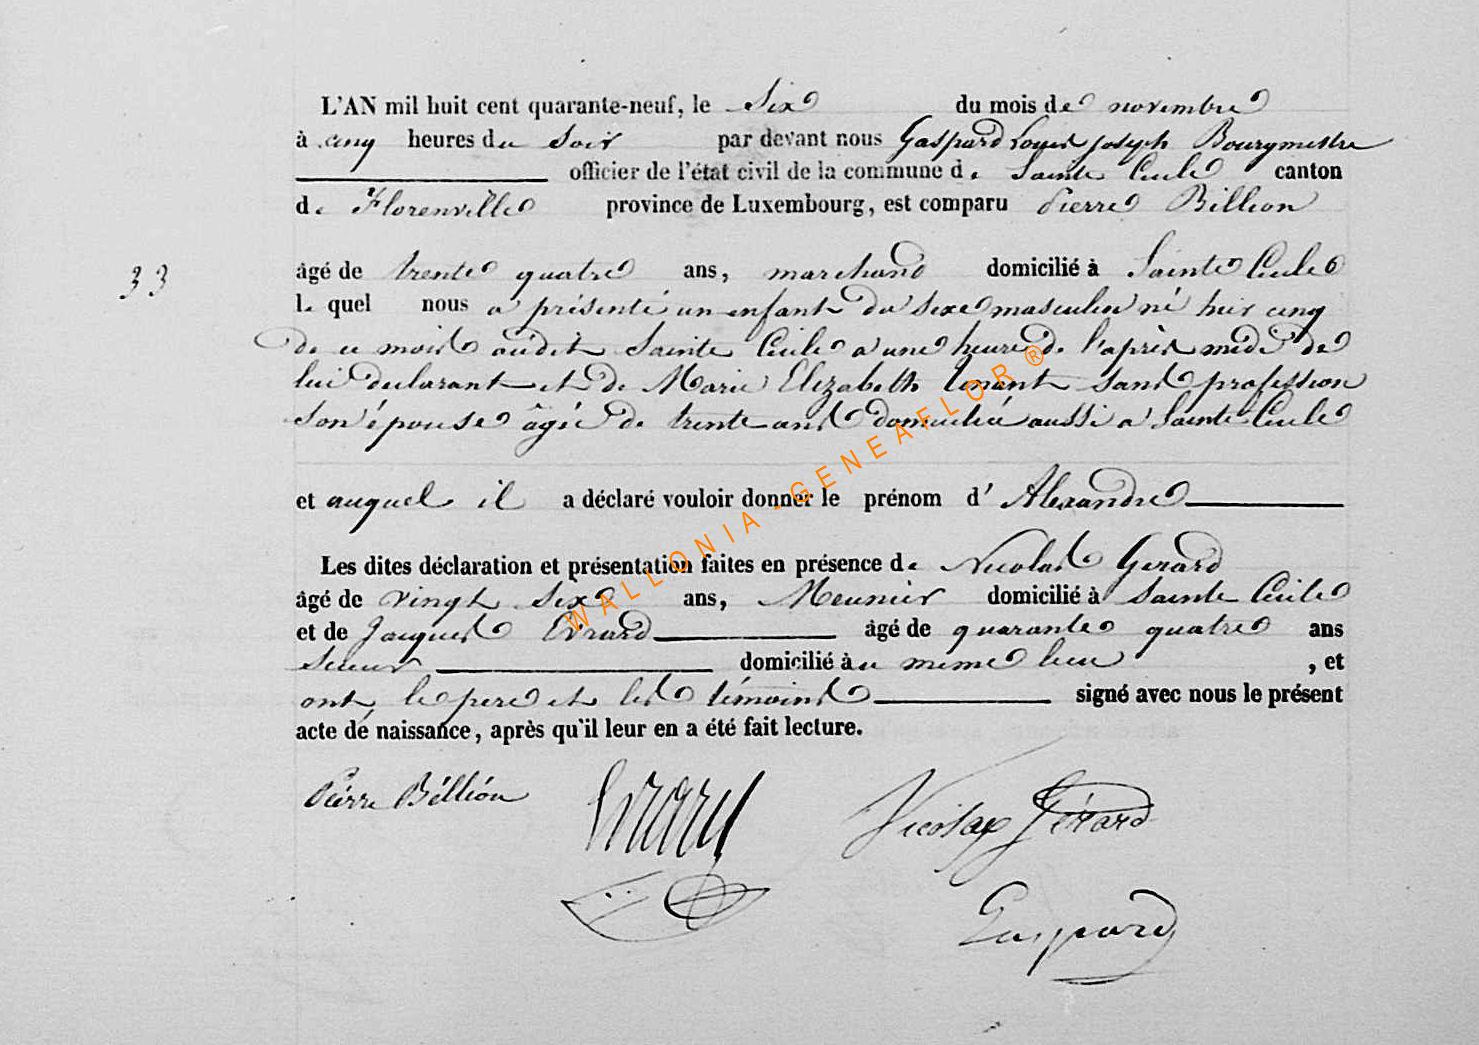 L'AN mil huit cent quarante-neuf, le Six du mois de novembre
à cinq heures du Soir par devant nous Gaspard Louis Joseph Bourgmestre
officier de l'état civil de la commune de Sainte Cecile canton
de Florenville province de Luxembourg, est comparu Pierre Billion
33
âgé de trente quatre ans, marchand domicilié à Sainte Cecile
le quel nous a présenté un enfant du sexe masculin né hier cinq
de ce mois audit Sainte Cécile a une heure de l'après midi de
lui declarant et de Marie Elizabeth sans profession
son épouse âgée de trente ans domiciliée aussi a Sainte Cecile
et auquel il a déclaré vouloir donner le prénom d' Alexandre
Les dites déclaration et présentation faites en présence de Nicolas Gerard
âgé de vingt Six ans, Meunier domicilié à Sainte Cécile
et de Jacques Evrard âgé de quarante quatre ans
domicilié à u meme lieu , et
ont le pere et les témoins signé avec nous le présent
acte de naissance, après qu'il leur en a été fait lecture.
Pierre Béllión Evrard Nicolas Gérard
Gaspard
WALLONIA - GENEAFLOR ®